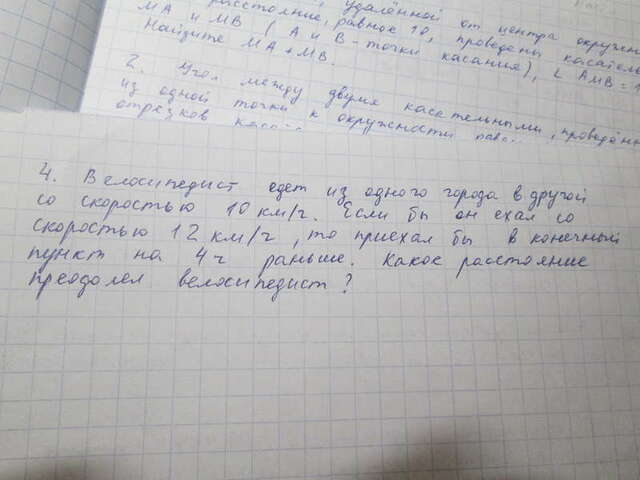 удалённой от центра окружн
расстояние, равное 10, проведены касатель
MA и MB ( A и B - точки касания), ∠ AMB = 
Найдите MA + MB.
2. Угол между двумя касательными, проведённ
из одной точки к окружности
отрезков
4. Велосипедист едет из одного города в другой
со скоростью 10 км/г. Если бы он ехал со
скоростью 12 км/г, то приехал бы в конечный
пункт на 4 ч раньше. Какое расстояние
преодолел велосипедист?